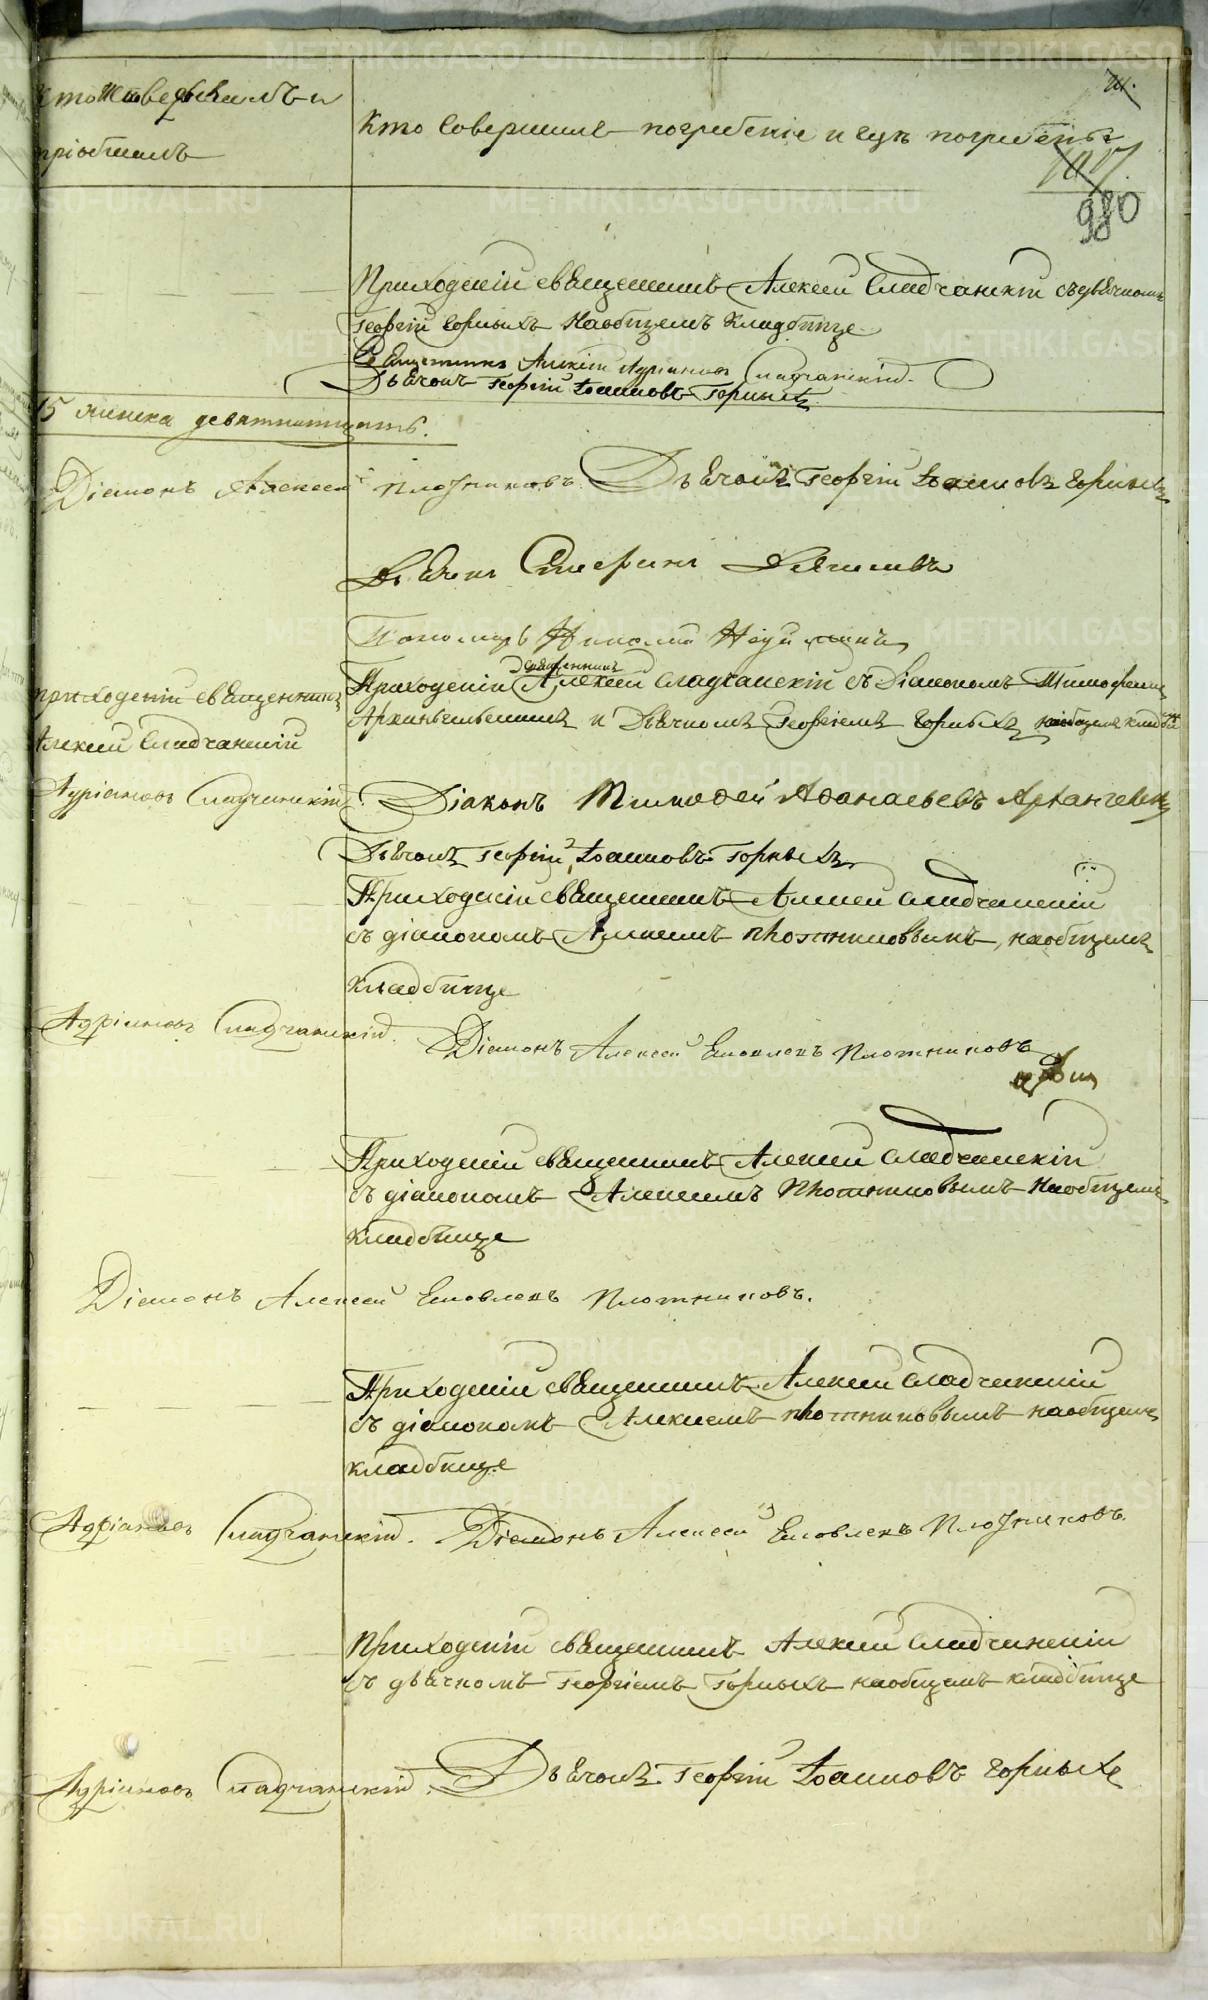 Кто исповедывалъ и
пріобщалъ
Кто совершилъ погребеніе и гдѣ погребены
980
Приходскій священникъ Алексѣй Сладчанскій съ дьячкомъ
Георгій Горныхъ на общемъ кладбище
Священникъ Алексій Адріановъ Сладчанскій.
Дьячокъ Георгій Іоанновъ Горныхъ
женска девятнатцать.
Діаконъ Алексей Плотниковъ. Дьячокъ Георгій Іоанновъ Горныхъ
Дьячекъ
Пономарь Николай
приходскій священникъ
Алексей Сладчанскій
священникъ
Приходскій Алексей Сладчанскій съ Діакономъ Тимофеемъ
Архангельскимъ и Дьячкомъ Георгіемъ Горныхъ на общемъ кладбище
Адріановъ Сладчанскій. Діаконъ Тимофей Афанасьевъ Архангельскій
Дьячокъ Георгій Іоанновъ Горныхъ
Приходскій священникъ Алексей Сладчанскій
съ діакономъ Алексеемъ Плотниковымъ, на общемъ
кладбище
Адріановъ Сладчанскій. Діаконъ Алексей Яковлевъ Плотниковъ
Приходскій священникъ Алексей Сладчанскій
съ діакономъ Алексеемъ Плотниковымъ на общемъ
кладбище
Діаконъ Алексей Яковлевъ Плотниковъ.
Приходскій священникъ Алексей Сладчанскій
съ діакономъ Алексеемъ Плотниковымъ на общемъ
кладбище
Адріановъ Сладчанскій. Діаконъ Алексей Яковлевъ Плотниковъ.
Приходскій священникъ Алексей Сладчанскій
съ дьячкомъ Георгіемъ Горныхъ на общемъ кладбище
Адріановъ Сладчанскій. Дьячокъ Георгій Іоанновъ Горныхъ
METRIKI.GASO-URAL.RU